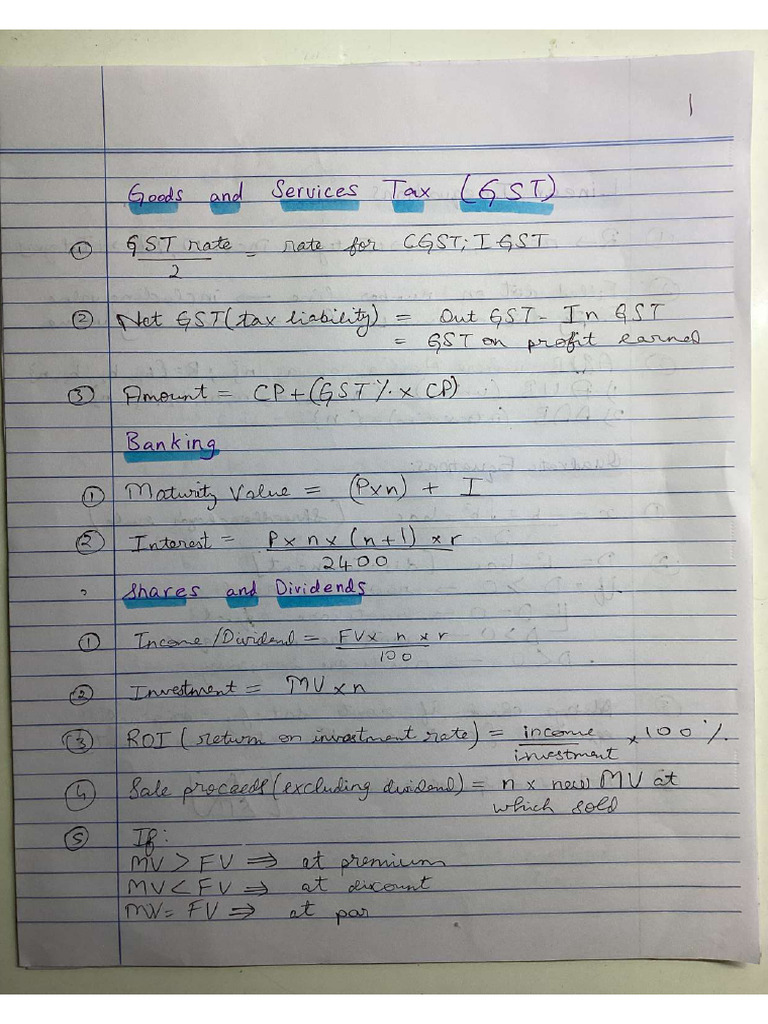 1
Goods and Services Tax (GST)
① GST rate / 2 = rate for CGST; IGST
② Net GST (tax liability) = Out GST - In GST
= GST on profit earned
③ Amount = CP + (GST % × CP)
Banking
① Maturity Value = (P×n) + I
② Interest = P × n × (n+1) × r / 2400
Shares and Dividends
① Income/Dividend = FV × n × r / 100
② Investment = MV × n
③ ROI (return on investment rate) = income / investment × 100 %.
④ Sale proceeds (excluding dividend) = n × new MV at
which sold
⑤ If:
MV > FV ⇒ at premium
MV < FV ⇒ at discount
MV = FV ⇒ at par